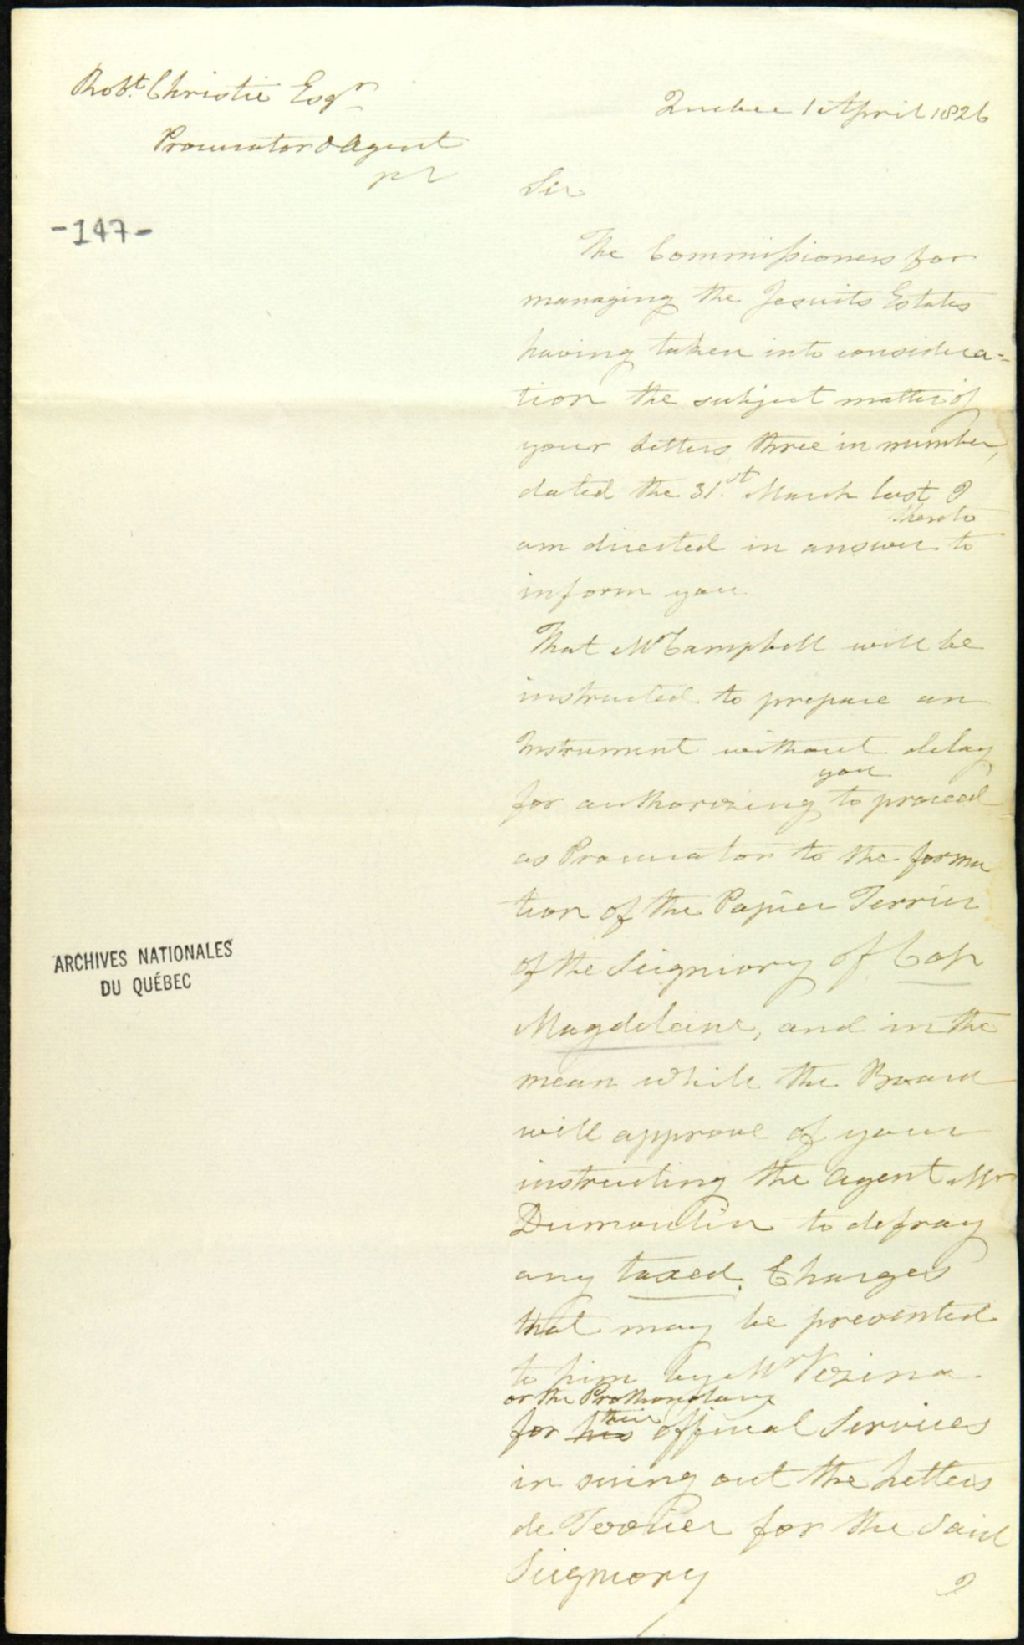 Robt. Christie Esqr
Procurator & Agent
-147-
Quebec 1 April 1826
Sir
The Commissioners for
managing the Jesuits Estates
having taken into considera-
tion the subject matter of
your letters three in number,
dated the 31st March last I
thereto
am directed in answer to
inform you
That Mr Campbell will be
instructed to prepare an
Instrument without delay
you
for authorizing to proceed
as Procurator to the forma
tion of the Papier Terrier
of the Seigniory of Cap
Magdeleine, and in the
mean while the Board
will approve of your
instructing the Agent Mr
Dumoulin to defray
any taxed Charges
that may be presented
to him by Mr Vezina
or the Prothonotary
their
for his official Services
in suing out the Letters
de Terrier for the said
Seigniory
ARCHIVES NATIONALES
DU QUÉBEC